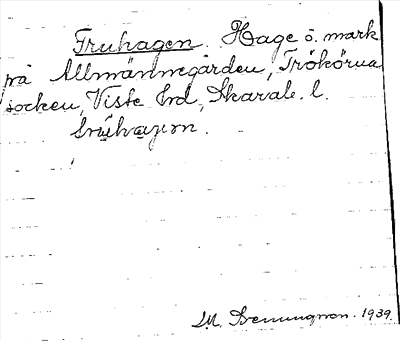 Fruhagen. Hage ö. mark
på Allmänningården, Trökörna
socken, Viste hd, Skarab. l.
M. Benningsson. 1939.